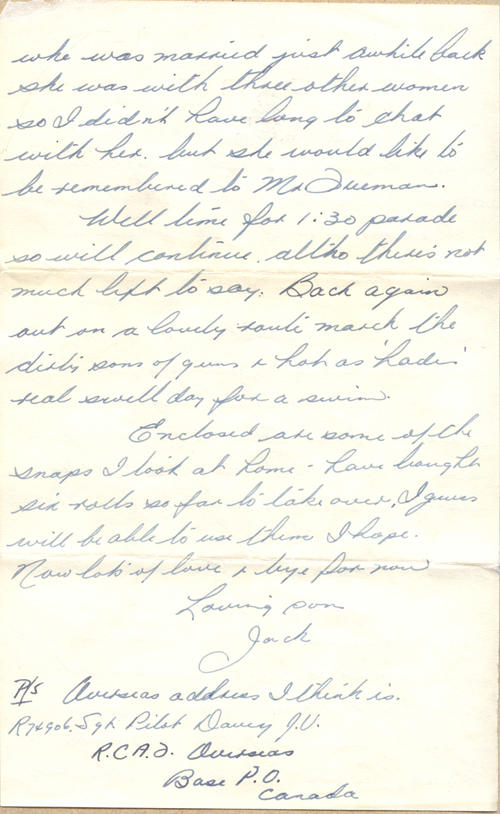 who was married just awhile back
she was with three other women
so I didn't have long to chat
with her. but she would like to
be remembered to Mr Trueman.
Well time for 1:30 parade
so will continue. altho there's not
much left to say. Back again
out on a lovely route march the
dirty sons of guns & hot as 'hades'
real swell day for a swim.
Enclosed are some of the
snaps I took at home - have bought
six rolls so far to take over, I guess
will be able to use them I hope.
Now lots of love & bye for now
Loving son
Jack
P/S Overseas address I think is.
R74906. Sgt. Pilot Davey J.V.
R.C.A.F. Overseas
Base P.O.
Canada